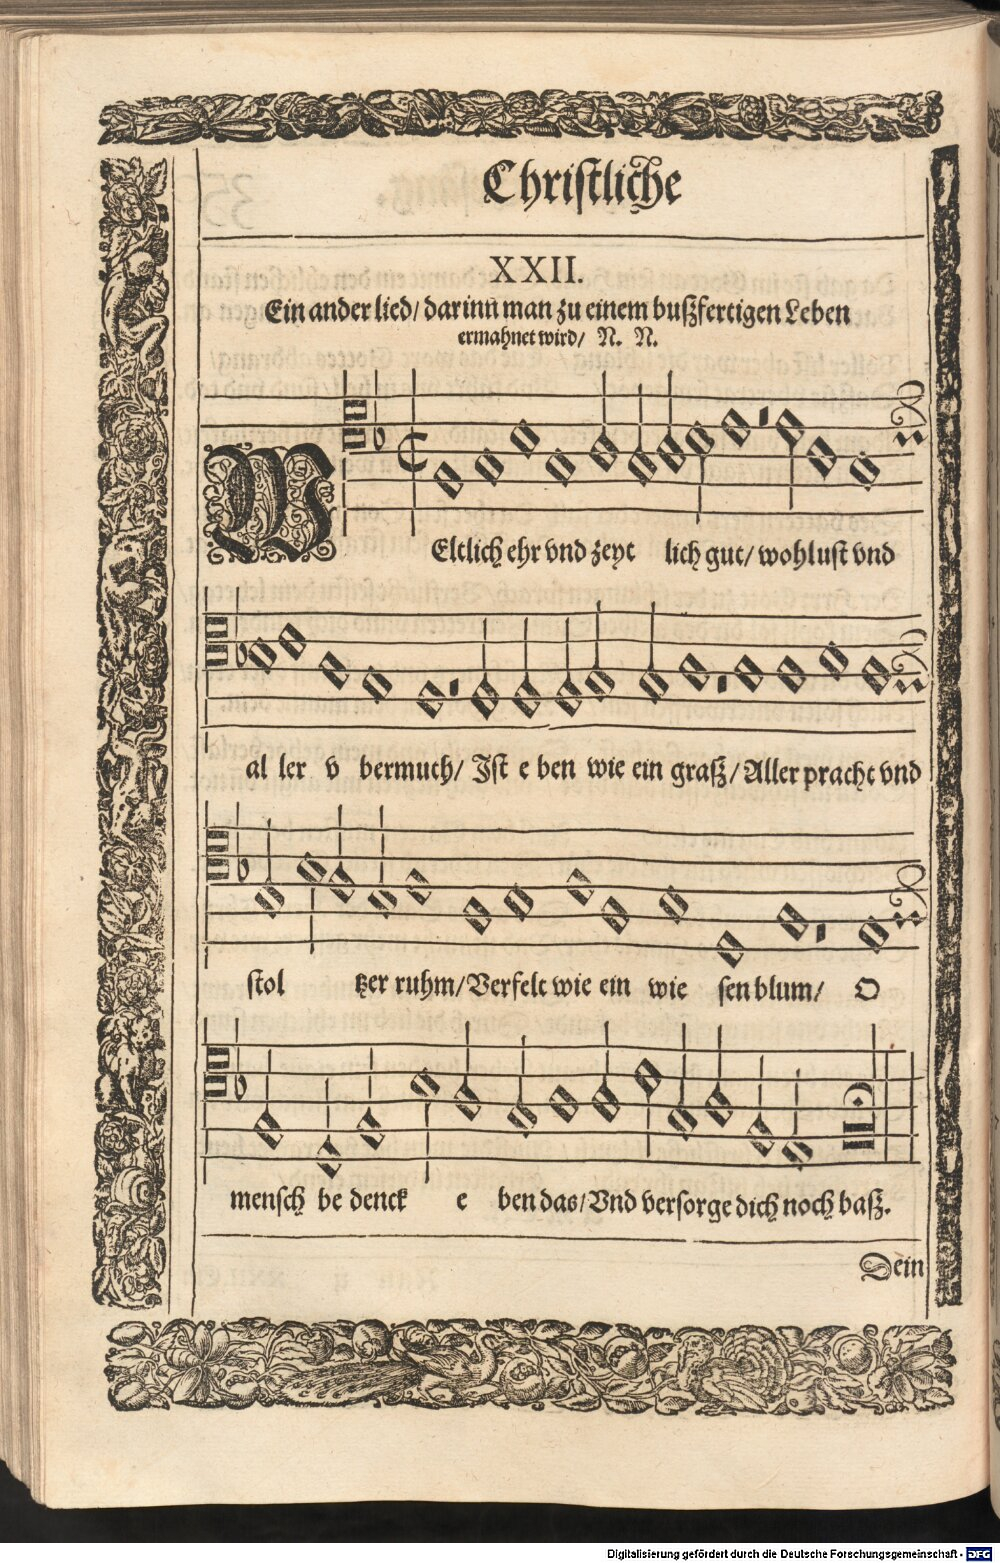 Christliche
XXII.
Ein ander lied/ darinn man zu einem bußfertigen Leben
ermahnet wird/ N. N.
WEltlich ehr vnd zeyt lich gut/ wohlust vnd
al ler v bermuth/ Jst e ben wie ein graß/ Aller pracht vnd
stol tzer ruhm/ Verfelt wie ein wie sen blum/ O
mensch be denck e ben das/ Vnd versorge dich noch baß.
Dein
Digitalisierung gefördert durch die Deutsche Forschungsgemeinschaft - DFG